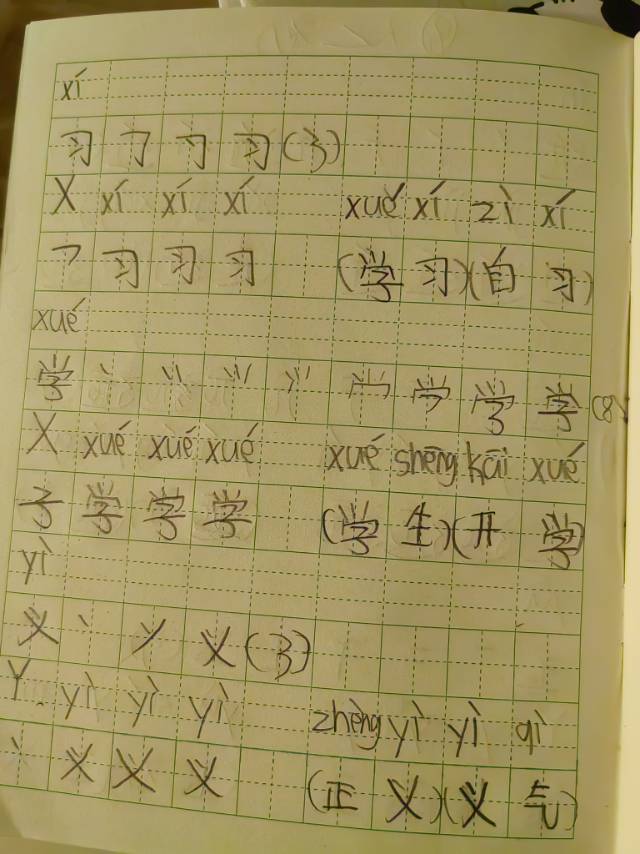 xí
习 𠃌 刁 习 (3)
X xí xí xí xué xí zì xí
乛 习 习 习 (学 习)(自 习)
xué
学 丶 丷 ⺍ ⺍ 学 学 (8)
X xué xué xué xué shēng kāi xué
子 学 学 学 (学 生)(开 学)
yì
义 丶 ソ 义 (3)
Y yì yì yì zhèng yì yì qì
丶 义 义 义 (正 义)(义 气)